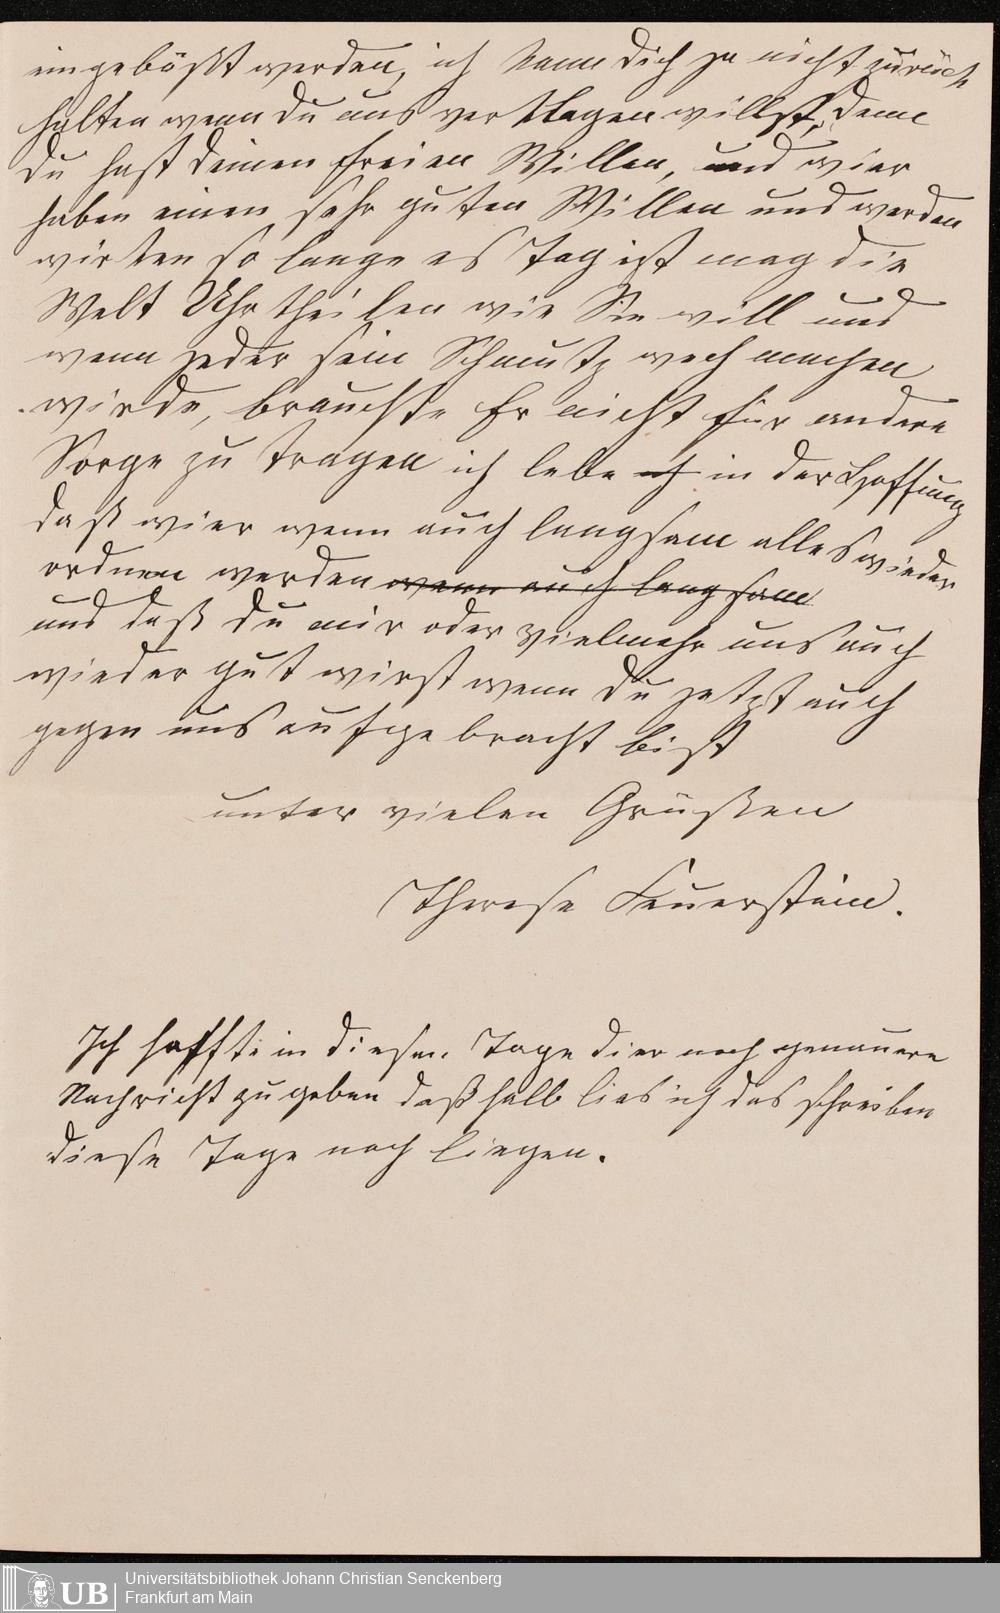 eingebüßt werden, ich kann dich ja nicht zurück
halten wenn du uns verklagen willst, denn
du hast deinen freien Willen, und wier
haben einen sehr guten Willen und werden
wirken so lange es Tag ist mag die
Welt Uhrtheilen wie Sie will und
wenn jeder sein Schmutz wech machen
wirde, brauchte Er nicht für andere
Sorge zu tragen ich lebe ich in der Hoffnung
daß wier wenn auch langsam alles wieder
ordnen werden wenn auch langsam
und daß du mir oder vielmehr uns auch
wieder gut wirst wenn du jetzt auch
gegen uns aufgebracht bist
unter vielen Grüßen
Therese Feuerstein.
Ich hoffte in diesen Tage dier noch genauere
Nachricht zu geben daßhalb lies ich das schreiben
diese Tage noch liegen.
UB Universitätsbibliothek Johann Christian Senckenberg
Frankfurt am Main